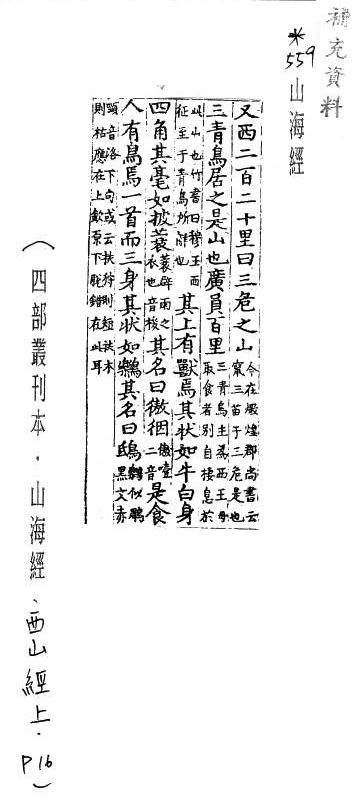 補充資料
*559 山海經
又西二百二十里曰三危之山今在燉煌郡尚書云竄三苗于三危是也
三青鳥居之是山也廣員百里三青鳥主為西王母取食者別自棲息於
此山也竹書曰穆王西征至于青鳥所解也其上有獸焉其狀如牛白身
四角其毫如披蓑蓑辟雨之衣也音梭其名曰傲㣜傲噎二音是食
人有鳥焉一首而三身其狀如𪇱其名曰鴟𪇱似鵰黑文赤
頸音洛下句或云扶狩則短扶木則枯應在上欽原下脫錯在此耳
(四部叢刊本.山海經、西山經上.P16)